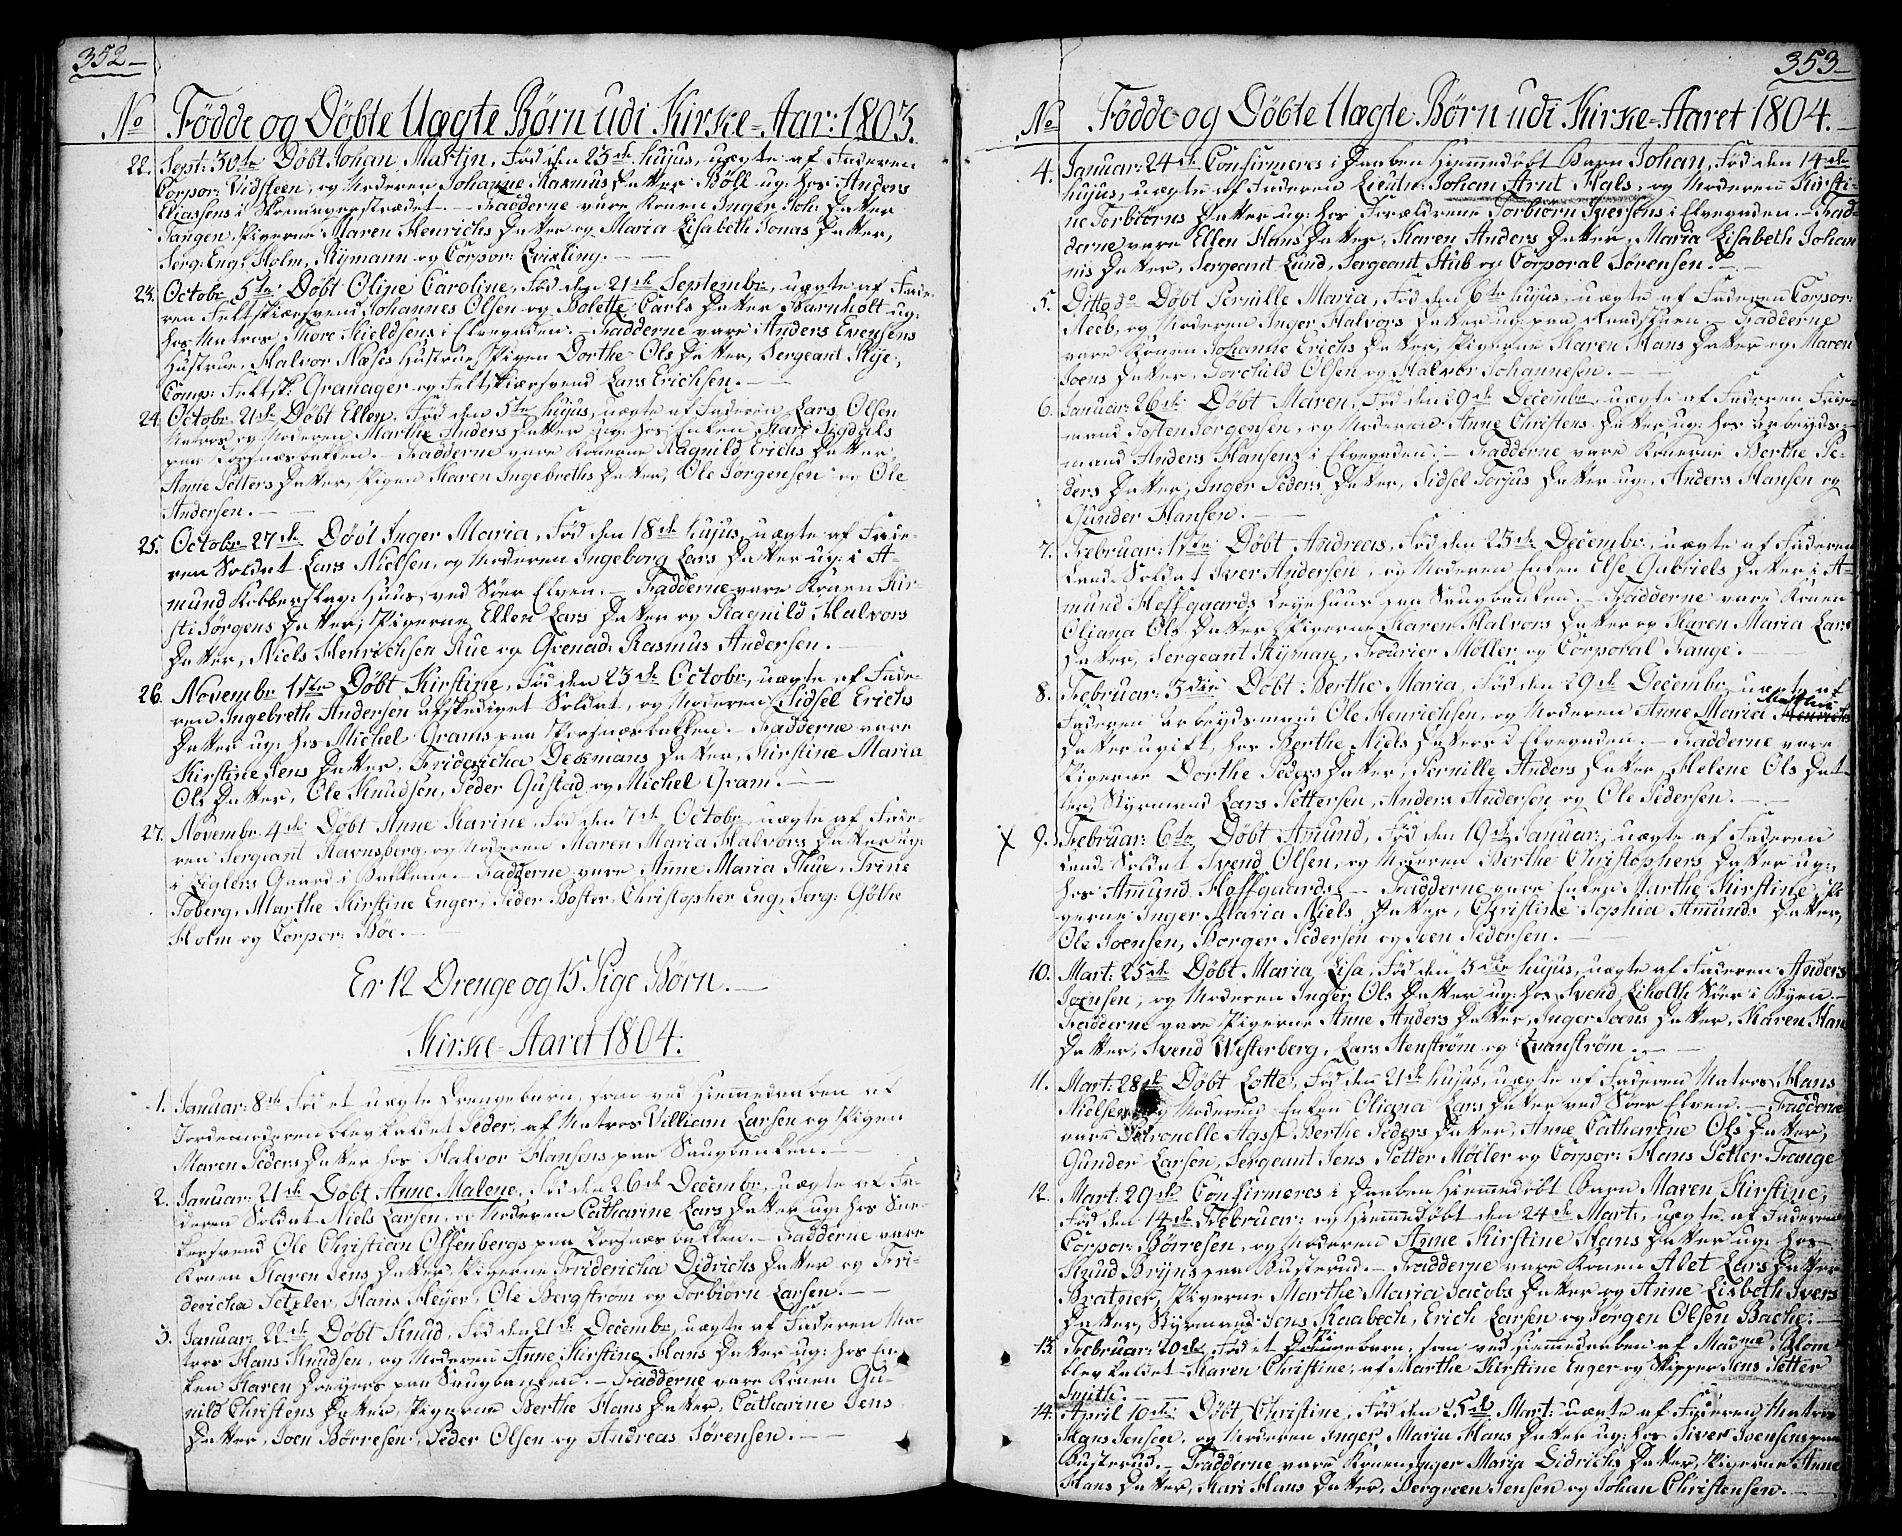 352
No Fødde og Døbte Uægte Børn udi Kirke-Aar: 1803.
22. Sept: 30te Døbt Johan Martin, Fød den 23de hujus, uægte af Faderen
Corpor: Vidsteen, og Moderen Johanne Rasmus Datter Bøll ug: hos Anders
Eliassens i Skomagerstrædet. — Fadderne vare Konen Inger Joh: Datter
Tangen, Pigerne Maren Henrichs Datter og Maria Lisabeth Jonas Datter,
Serg: Eng: Holm, Rÿmann og Corpor: Qvisling. —
23. Octobr 5te Døbt Oline Caroline, Fød den 21de Septembr, uægte af Fade-
ren Feltskiærsvend Johannes Olsen og Bolette Carls Datter Barnholt ug:
hos Matros Thore Kieldsens i Elvegaden. — Fadderne vare Anders Evensens
Hustrue, Halvor Næses Hustrue, Pigen Dorthe Ols Datter, Sergeant Skje,
Comp: Feltsk: Granager og Feltskiærsvend Lars Erichsen. —
24. Octobr 21de Døbt Ellen, Fød den 5te hujus, uægte af Faderen Lars Olsen
Matros og Moderen Marthe Anders Datter ug: hos Enken Mari Sigdals
paa Torsnæsbakken. — Fadderne vare Konerne Ragnild Erichs Datter,
Anne Petters Datter, Pigen Karen Ingebreths Datter, Ole Jorgensen og Ole
Andersen. —
25. Octobr 27de Døbt Inger Maria, Fød den 18de hujus, uægte af Fade-
ren Soldat Lars Nielsen, og Moderen Ingeborg Lars Datter ug: i A-
mund Kobberslag: Huus ved Søer Elven. — Fadderne vare Konen Kir-
sti Jørgens Datter, Pigerne Ellen Lars Datter og Ragnild Halvors
Datter, Niels Henrichsen Rue og Grenad: Rasmus Andersen. —
26. Novembr 1ste Døbt Kirstine, Fød den 23de Octobr, uægte af Fade-
ren Ingebreth Andersen afskediget Soldat, og Moderen Sidsel Erichs
Datter ug: hos Michel Grams paa Torsnæsbakken. — Fadderne vare
Kirstine Jens Datter, Fridericha Dedemans Datter, Kirstine Maria
Ols Datter, Ole Knudsen, Peder Gustad og Michel Gram. —
27. Novembr 4de Døbt Anne Karine, Fød den 7de Octobr, uægte af Fade-
ren Sergeant Ravnsberg, og Moderen Maren Maria Halvors Datter ug:
i Ziglers Gaard i Bakkene. — Fadderne vare Anne Maria Thue, Trine
Toberg, Marthe Kirstine Enger, Peder Boster, Christopher Eng, Serg: Gøthe
Holm og Corpor: Bøe. —
Er 12 Drenge og 15 Pige Børn. —
Kirke-Aaret 1804.
1. Januar: 8de Fød et uægte Drengebarn, som ved Hiemmedaaben af
Jordemoderen blev kaldet Peder, af Matros Villiam Larsen og Pigen
Maren Peders Datter hos Halvor Hansens paa Saugbanken. —
2. Januar: 21de Døbt Anne Malene, Fød den 26de Decembr, uægte af Fa-
deren Soldat Niels Larsen, og Moderen Catharine Lars Datter ug: hos Sne-
kersvend Ole Christian Olsenbergs paa Torsnæsbakken. — Fadderne vare
Konen Karen Jens Datter, Pigerne Fridericha Didrichs Datter og Fri-
dericha Setzler, Hans Meÿer, Ole Bergstrøm og Torbiørn Larsen. —
3. Januar: 22de Døbt Knud, Fød den 21de Decembr, uægte af Faderen Ma-
tros Hans Knudsen, og Moderen Anne Kirstine Hans Datter ug: hos En-
ken Karen Dreyers paa Saugbanken. — Fadderne vare Konen Gu-
nild Christens Datter, Pigerne Berthe Hans Datter, Catharine Jens
Datter, Joen Børresen, Peder Olsen og Andreas Sørensen. —
353
No Fødde og Døbte Uægte Børn udi Kirke-Aaret 1804.
4. Januar: 24de Confirmeres i Daaben Hiemmedøbt Barn Johan, Fød den 14de
hujus, uægte af Faderen Lieutn: Johan Arnt Hals, og Moderen Kirsti-
ne Torbiørns Datter ug: hos Forældrene Torbiørn Iversens i Elvegaden. — Fad-
derne vare Ellen Hans Datter, Karen Anders Datter, Maria Lisabeth Johan-
nis Datter, Sergeant Lund, Sergeant Stub og Corporal Sørensen. —
5. Ditto do Døbt Pernille Maria, Fød den 6te hujus, uægte af Faderen Corpor:
Neeb, og Moderen Inger Halvors Datter ug: paa Raadstuen. — Fadderne
vare Konen Johanne Erichs Datter, Pigerne Karen Hans Datter og Maren
Joens Datter, Torchild Olsen og Halvor Johannesen. —
6. Januar: 26de Døbt Maren, Fød den 29de Decembr, uægte af Faderen Fade-
mand Tosten Jorgensen, og Moderen Anne Christens Datter ug: hos Arbeyds-
mand Anders Hansens i Elvegaden. — Fadderne vare Konerne Berthe Pe-
ders Datter, Inger Peders Datter, Sidsel Torjus Datter ug:, Anders Hansen og
Gunder Hansen. —
7. Februar: 1ste Døbt Andreas, Fød den 25de Decembr, uægte af Faderen
Land-Soldat Iver Andersen, og Moderen Enken Else Gabriels Datter i A-
mund Hoffgaards Leyehuus paa Saugbanken. — Fadderne vare Konen
Oliana Ols Datter, Pigerne Karen Halvors Datter og Karen Maria Lars
Datter, Sergeant Rÿman, Fourier Møller og Corporal Frange. —
8. Februar: 3die Døbt Berthe Maria, Fød den 29de Decembr, uægte af
Faderen Arbeydsmand Ole Henrichsen, og Moderen Anne Maria Henrichs
Datter ugift, hos Berthe Niels Datters i Elvegaden. — Fadderne vare
Pigerne Dorthe Peders Datter, Pernille Anders Datter, Helene Ols Dat-
ter, Styrmand Lars Pettersen, Anders Andersen og Ole Pedersen. —
x 9. Februar: 6te Døbt Amund, Fød den 19de Januar:, uægte af Faderen
Land-Soldat Svend Olsen, og Moderen Berthe Christophers Datter ug:
hos Amund Hoffgaards. — Fadderne vare Enken Marthe Kirstine, Pi-
gerne Inger Maria Niels Datter, Christine Sophia Amunds Datter,
Ole Joensen, Borger Pedersen og Joen Pedersen. —
10. Mart: 25de Døbt Maria Lisa, Fød den 3die hujus, uægte af Faderen Anders
Joensen, og Moderen Inger Ols Datter ug: hos Svend Liholth Søer i Byen. —
Fadderne vare Pigerne Anne Anders Datter, Inger Joens Datter, Karen Han
Datter, Svend Westerberg, Lars Stenstrøm og Qvanstrøm. —
11. Mart: 28de Døbt Lotte, Fød den 21de hujus, uægte af Faderen Matros Hans
Nielsen, og Moderen Enken Oliana Lars Datter ved Søer Elven. — Fadderne
vare Petronelle Agst, Berthe Peders Datter, Anne Catharine Ols Datter,
Gunder Larsen, Sergeant Jens Petter Møller og Corpor: Hans Petter Frange
12. Mart: 29de Confirmeres i Daaben Hiemmedøbt Barn Maren Kirstine,
Fød den 14de Februar: og Hiemmedøbt den 24de Mart:, uægte af Faderen
Corpor: Børresen, og Moderen Anne Kirstine Hans Datter ug: hos
Knud Brÿns paa Busterud. — Fadderne vare Konen Alet Lars Datter
Bratner, Pigerne Marthe Maria Jacobs Datter og Anne Lisbeth Ivers
Datter, Styrmand Jens Kaabech, Erich Larsen og Jørgen Olsen Bache. —
13. Februar: 20de Fød et Pigebarn, som ved Hiemmedaaben af Madme Blom
blev kaldet Karen Christine, af Marthe Kirstine Enger og Skipper Jens Petter
Smith. —
14. April 10de Døbt Christine, Fød den 25de Mart: uægte af Faderen Matros
Hans Jensen, og Moderen Inger Maria Hans Datter ug: hos Siver Svensens paa
Busterud. — Fadderne vare Konen Inger Maria Didrichs Datter, Pigerne Anne
Hans Datter, Mari Hans Datter, Bergreen Jensen og Johan Christensen. —